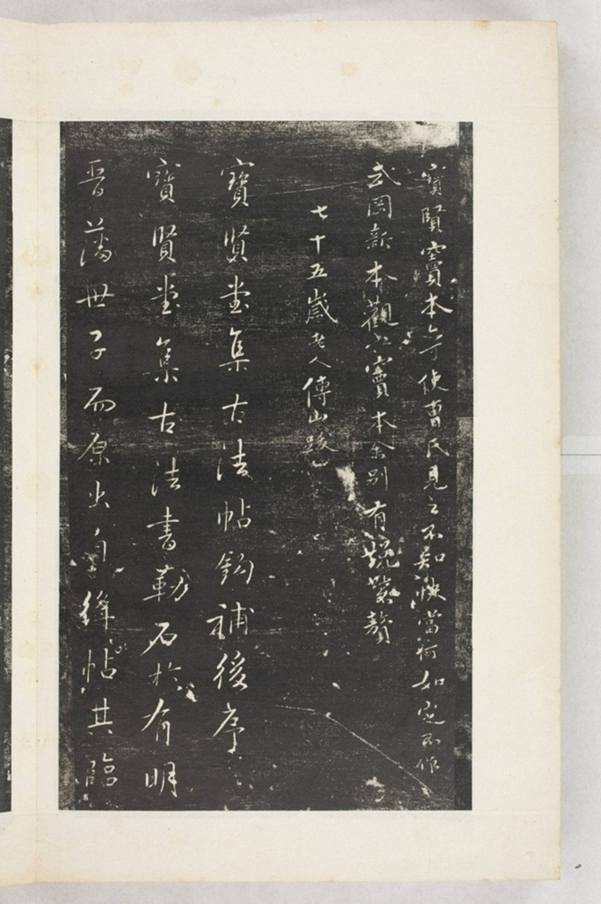 寶賢寶本令使曹氏見之不知慚當何如定不作
武岡新本觀寶本余別有絳帖贊
七十五歲老人傅山跋
寶賢堂集古法帖鉤補後序
寶賢堂集古法書勒石於有明
晉藩世子而原出自絳帖其臨